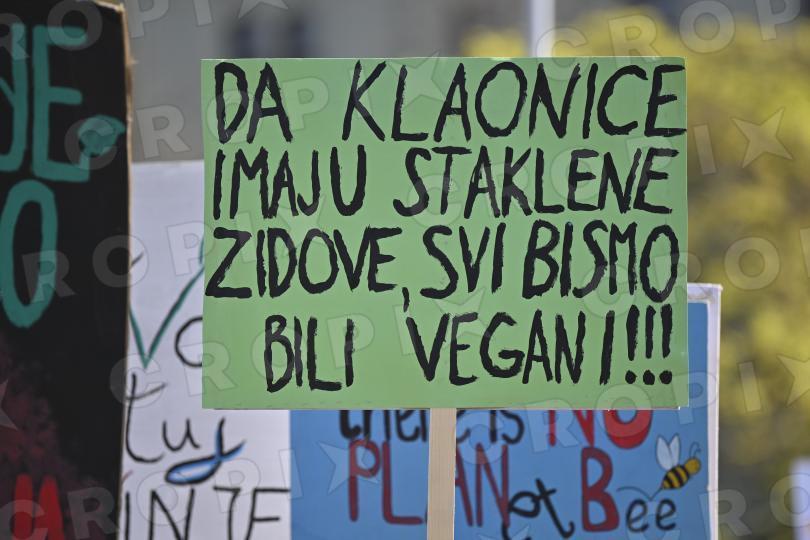 DA KLAONICE
IMAJU STAKLENE
ZIDOVE, SVI BISMO
BILI VEGANI!!!
there is NO
PLANet B
Bee
CROPIX